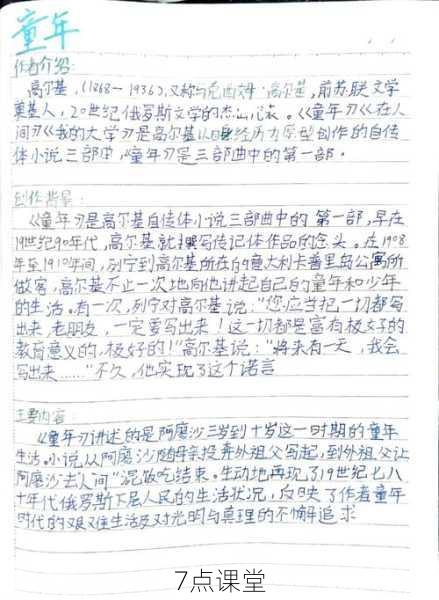 童年
作者介绍:
高尔基,(1868-1936),又称马克西姆·高尔基,前苏联文学
奠基人,20世纪俄罗斯文学的杰出代表。《童年》《在人
间》《我的大学》是高尔基以自身经历为原型创作的自传
体小说三部曲,《童年》是三部曲中的第一部。
创作背景:
《童年》是高尔基自传体小说三部曲中的第一部,早在
19世纪90年代,高尔基就撰写传记体作品的念头。在1908
年至1910年间,列宁到高尔基所在的意大利卡普里岛公寓所
做客,高尔基不止一次地向他讲起自己的童年和少年
的生活。有一次,列宁对高尔基说:"您应当把一切都写
出来,老朋友,一定要写出来!这一切都是富有极好的
教育意义的,极好的!"高尔基说:"将来有一天,我会
写出来……"不久,他实现了这个诺言
主要内容:
《童年》讲述的是阿廖沙三岁到十岁这一时期的童年
生活。小说从阿廖沙随母亲投奔外祖父写起,到外祖父让
阿廖沙去"人间"混饭吃结束。生动地再现了19世纪七八
十年代俄罗斯下层人民的生活状况,反映了作者童年
时代的艰难生活及对光明与真理的不懈追求
7点课堂